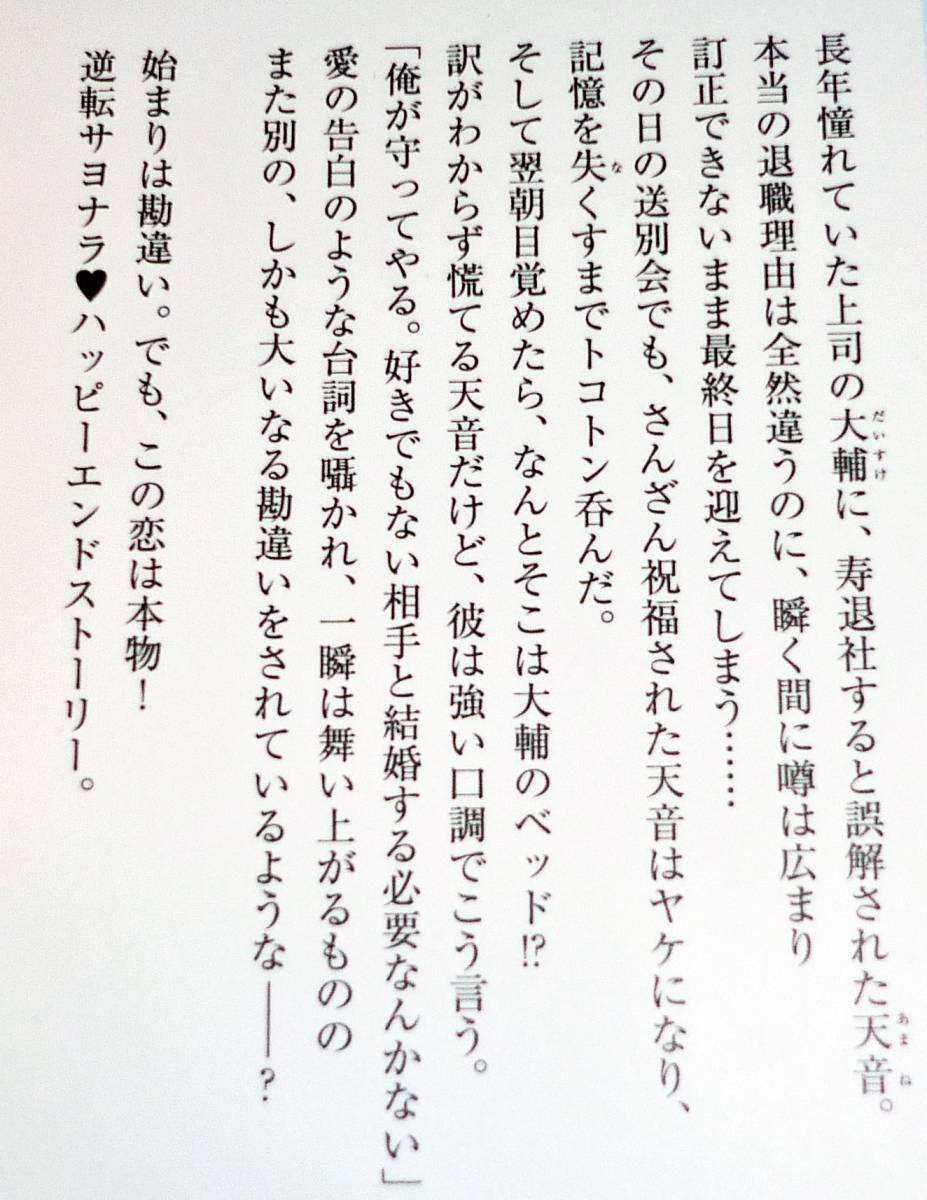 長年憧れていた上司の大輔に、寿退社すると誤解された天音。
本当の退職理由は全然違うのに、瞬く間に噂は広まり
訂正できないまま最終日を迎えてしまう……
その日の送別会でも、さんざん祝福された天音はヤケになり、
記憶を失くすまでトコトン呑んだ。
そして翌朝目覚めたら、なんとそこは大輔のベッド!?
訳がわからず慌てる天音だけど、彼は強い口調でこう言う。
「俺が守ってやる。好きでもない相手と結婚する必要なんかない」
愛の告白のような台詞を囁かれ、一瞬は舞い上がるものの
また別の、しかも大いなる勘違いをされているような――?
始まりは勘違い。でも、この恋は本物!
逆転サヨナラ♥ハッピーエンドストーリー。